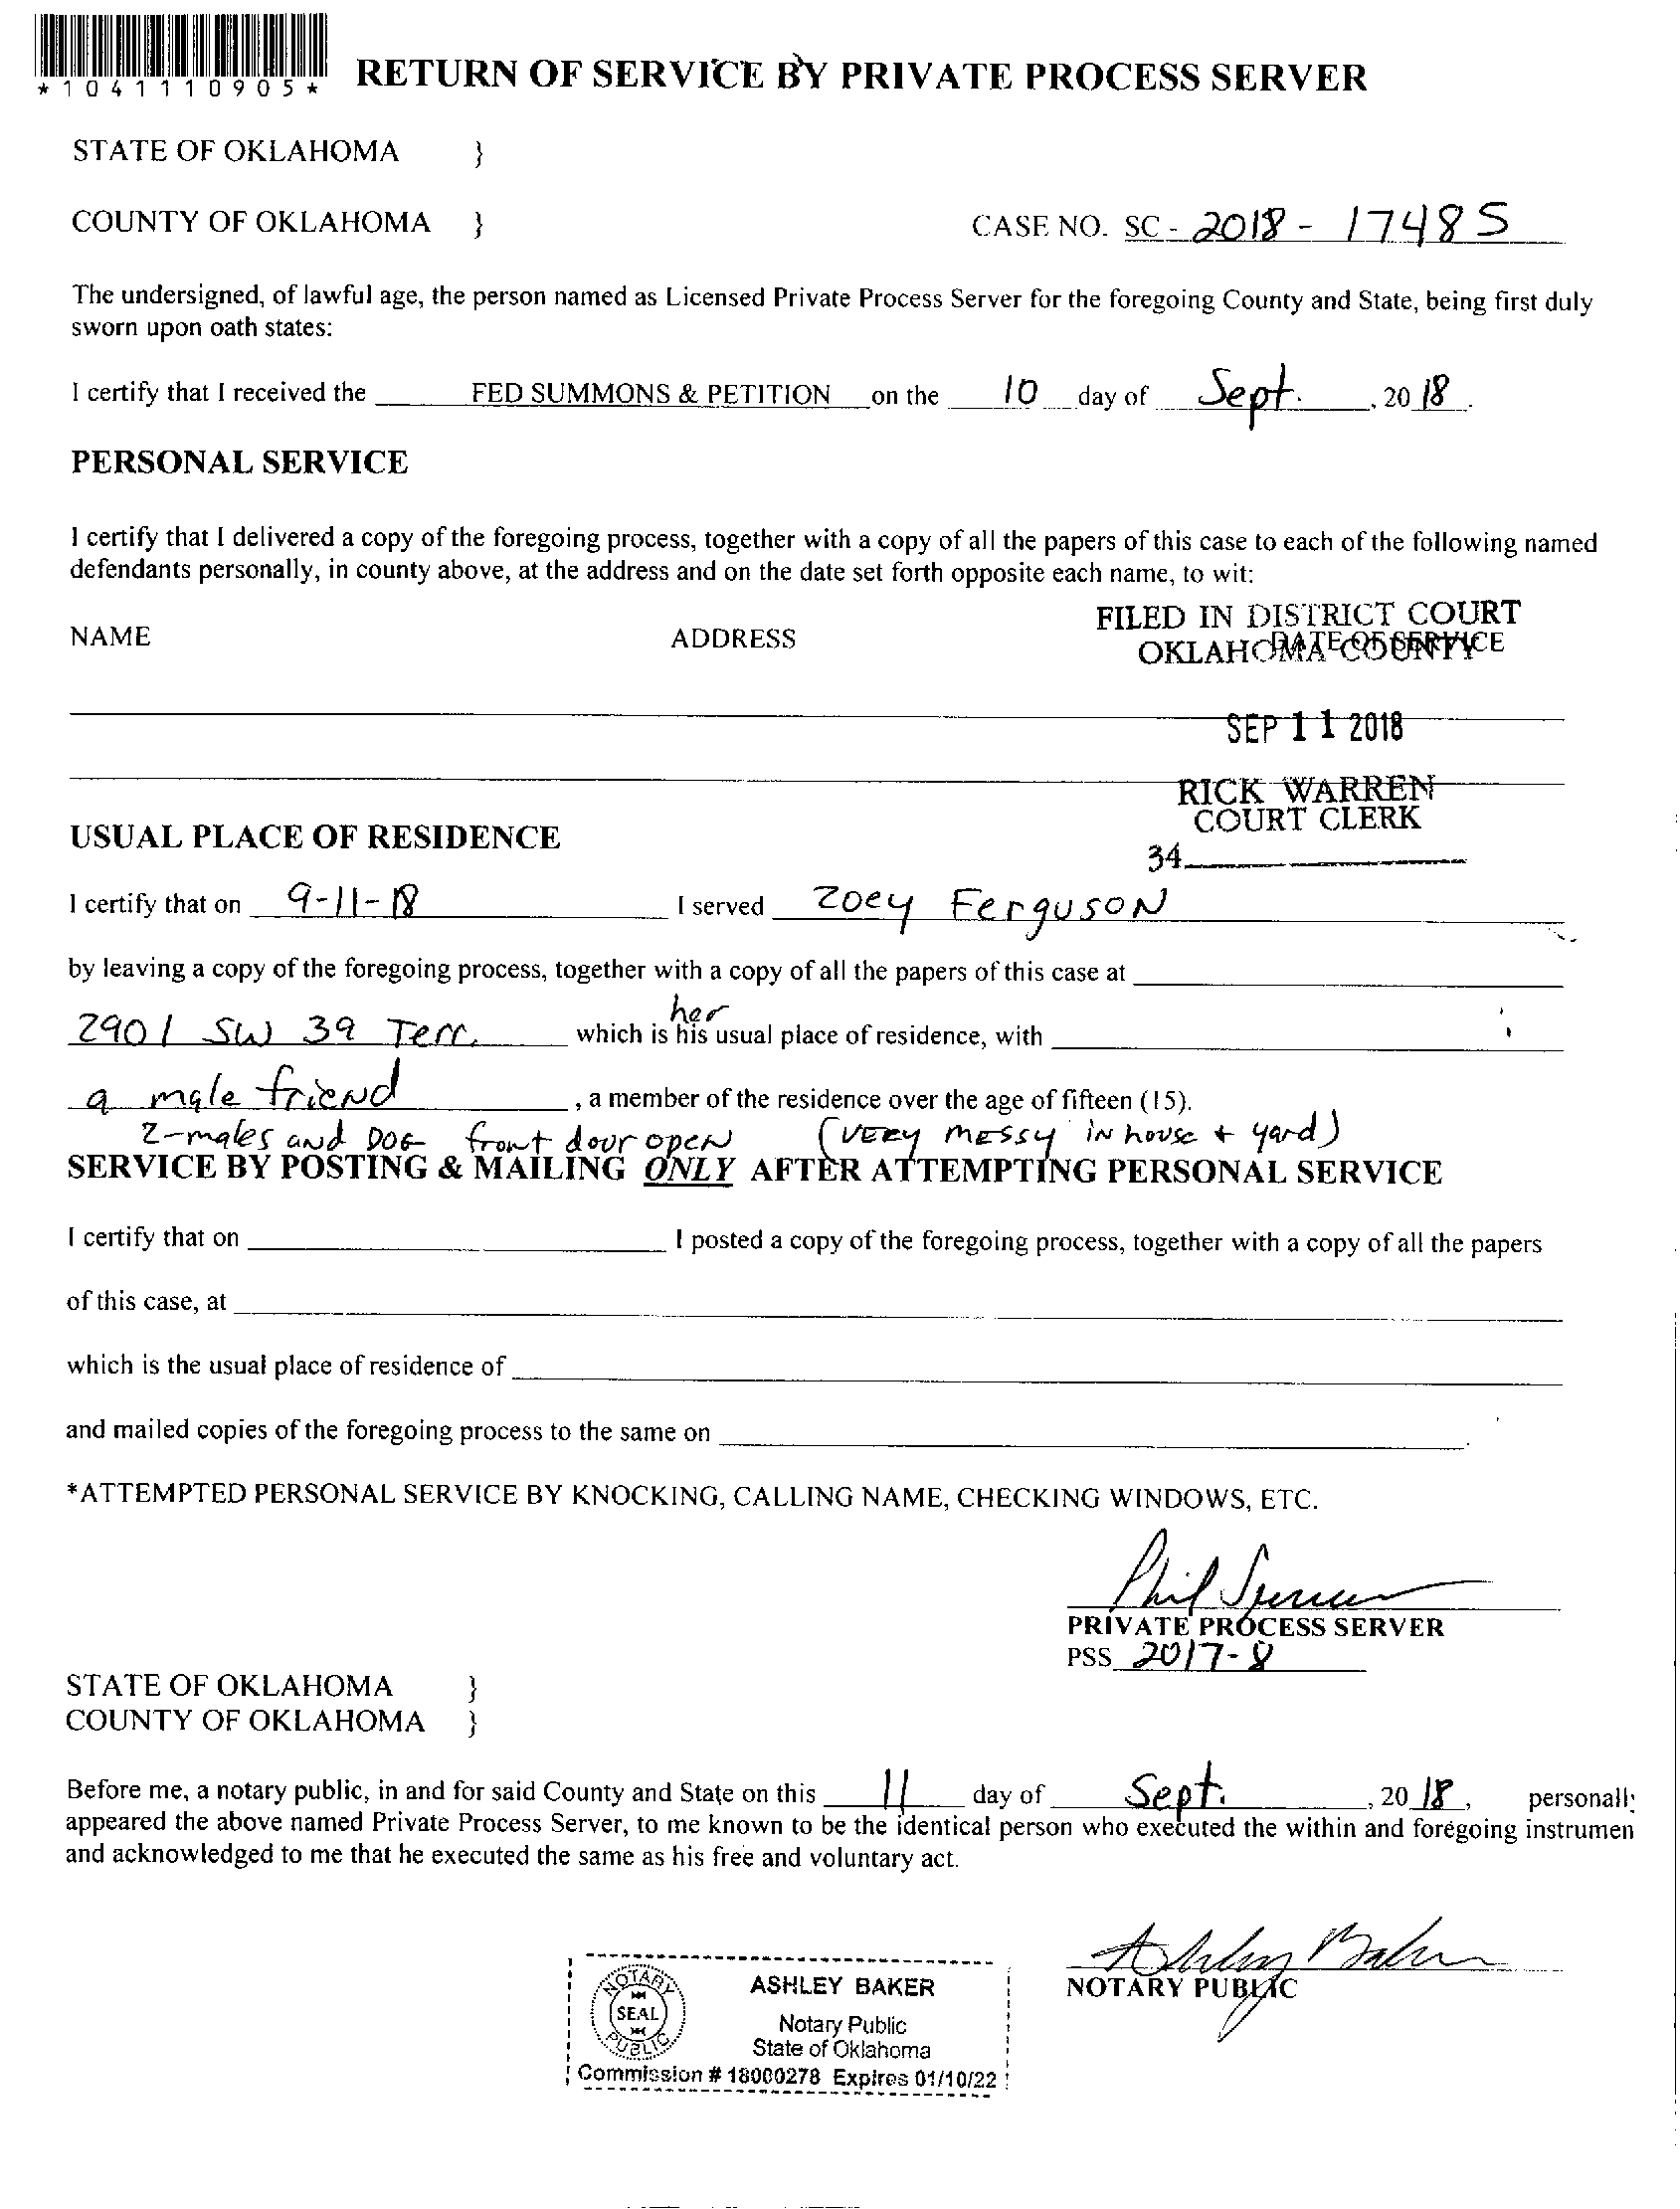 *1041110905*
RETURN OF SERVICE BY PRIVATE PROCESS SERVER
STATE OF OKLAHOMA }
COUNTY OF OKLAHOMA } CASE NO. SC - 2018 - 17485
The undersigned, of lawful age, the person named as Licensed Private Process Server for the foregoing County and State, being first duly
sworn upon oath states:
I certify that I received the FED SUMMONS & PETITION on the 10 day of Sept. , 20 18 .
PERSONAL SERVICE
I certify that I delivered a copy of the foregoing process, together with a copy of all the papers of this case to each of the following named
defendants personally, in county above, at the address and on the date set forth opposite each name, to wit:
FILED IN DISTRICT COURT
OKLAHOMA COUNTY
NAME ADDRESS DATE OF SERVICE
SEP 11 2018
RICK WARREN
COURT CLERK
34
USUAL PLACE OF RESIDENCE
I certify that on 9-11-18 I served Zoey Ferguson
by leaving a copy of the foregoing process, together with a copy of all the papers of this case at
her
2901 SW 39 Terr. which is his usual place of residence, with
a male friend , a member of the residence over the age of fifteen (15).
2-males and DOG front dour open (very messy in house + yard)
SERVICE BY POSTING & MAILING ONLY AFTER ATTEMPTING PERSONAL SERVICE
I certify that on I posted a copy of the foregoing process, together with a copy of all the papers
of this case, at
which is the usual place of residence of
and mailed copies of the foregoing process to the same on .
*ATTEMPTED PERSONAL SERVICE BY KNOCKING, CALLING NAME, CHECKING WINDOWS, ETC.
Phil
PRIVATE PROCESS SERVER
PSS 2017-8
STATE OF OKLAHOMA }
COUNTY OF OKLAHOMA }
Before me, a notary public, in and for said County and State on this 11 day of Sept. , 20 18 , personally
appeared the above named Private Process Server, to me known to be the identical person who executed the within and foregoing instrumen
and acknowledged to me that he executed the same as his free and voluntary act.
Ashley Baker
NOTARY PUBLIC
NOTARY SEAL PUBLIC
ASHLEY BAKER
Notary Public
State of Oklahoma
Commission # 18000278 Expires 01/10/22